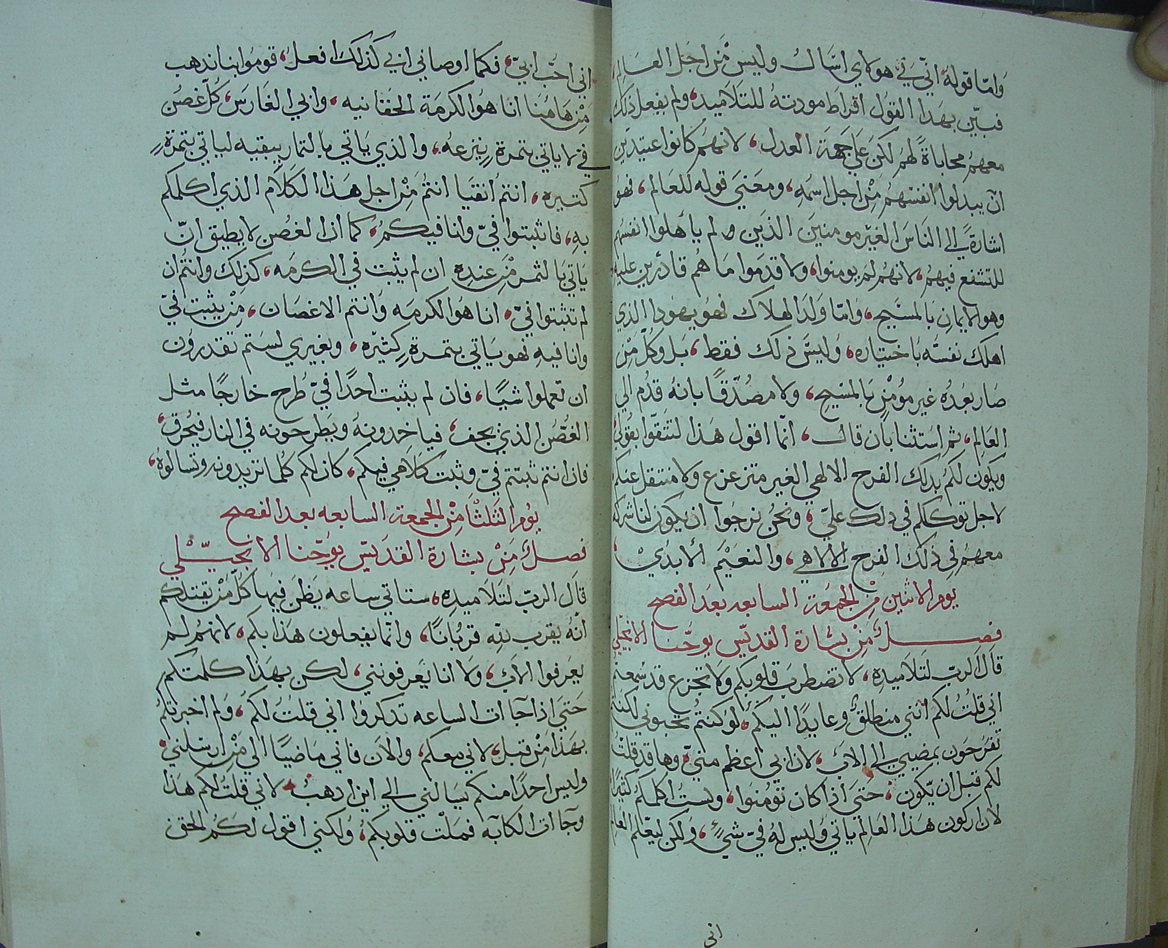 ولما قوله اني في هولاي اسال وليس من اجل العالم
فبين بهذا القول افراط مودته للتلاميد، ولم يفعل ذلك
معهم محاباةً لهم لكن على جهة العدل، لانهم كانوا عتيدين
ان يبدلوا انفسهم من اجل اسمه، ومعنى قوله للعالم، فهو
اشارة الى الناس الغير مومنين الذين لم ياهلوا انفسهم
للتشفع فيهم، لانهم لم يومنوا، ولا قدموا ما هم قادرين عليه
وهو الايمان بالمسيح، وامّا ولد الهلاك فهو يهودا الذي
اهلك نفسه باختياره، وليس ذلك فقط، بل وكل من
صار بعده غير مؤمن بالمسيح، ولا مصدقًا بانه قدم الى
العالم، ثم استثنا بان قال، انما اقول هذا لتثقوا بقولي
ويكون لكم بدلك الفرح الالهي الغير متزعزع ولا منتقل عنكم
لاجل توكلكم في دلك عليّ، ونحن نرجوا ان يكون لنا شركة
معهم في ذلك الفرح الالاهي، والنعيم الأبدي
يوم الاثنين من الجمعة السابعه بعد الفصح
فصل من بشارة القديس يوحنا الانجيلي
قال الرب لتلاميده، لا تضطرب قلوبكم ولا تجزع قد سمعتم
اني قلت لكم انني منطلق وعايدًا اليكم، لو كنتم تحبوني لكنتم
تفرحون بمضيي الى الاب، لان ابي اعظم مني، وها قد قلت
لكم قبل ان يكون، حتى اذا كان تؤمنوا، ولست اكلمكم كثيرًا
لان اركون هذا العالم ياتي وليس له في شيء، ولكن ليعلم العالم
اني
اني احب ابي، فكما اوصاني ابي كذلك افعل، قوموا بنا ندهب
من هاهنا انا هو الكرمة الحقانيه، وابي الغارس، كل غصن
في لا ياتي بتمرة ينزعه، والذي ياتي بالتمار ينقيه لياتي بتمرةٍ
كتيره، انتم انقيا انتم من اجل هذا الكلام الذي اكلمكم
به، فاتبتوا فيّ وانا فيكم، كما ان الغصن لا يطيق ان
ياتي بالثمر من عنده ان لم يثبت في الكرمه، كذلك وانتم ان
لم تثبتوا فيّ، انا هو الكرمه وانتم الاغصان، من يثبت فيّ
وانا فيه فهو ياتي بتمرةٍ كثيره، وبغيري لستم تقدرون
ان تعملوا شيًا، فان لم يثبت احدًا فيّ طرح خارجًا مثل
الغصن الذي يجف، فياخدونه ويطرحونه في النار فيحرق،
فان انتم ثبتتم فيّ وثبت كلامي فيكم، كان لكم كلما تريدونه وتسالوه،
يوم الثلثا من الجمعة السابعه بعد الفصح
فصل من بشارة القديس يوحنا الانجيلي
قال الرب لتلاميده، ستاتي ساعه يظن فيها كل من يقتلكم
انّه يقرب لله قربانًا، وانما يفعلون هذا بكم، لانهم لم
يعرفوا الاب، ولا انا يعرفونني، لكن بهذا كلمتكم
حتى اذا جاات الساعه تدكروا اني قلت لكم، ولم اخبرتكم
بهدا من قبل، لاني معكم، والان فاني ماضيًا الى من ارسلني
وليس احدًا منكم يسالني الى اين ادهب، لاني قلت لكم هذا
وجاات الكابه فملت قلوبكم، ولكني اقول لكم الحق